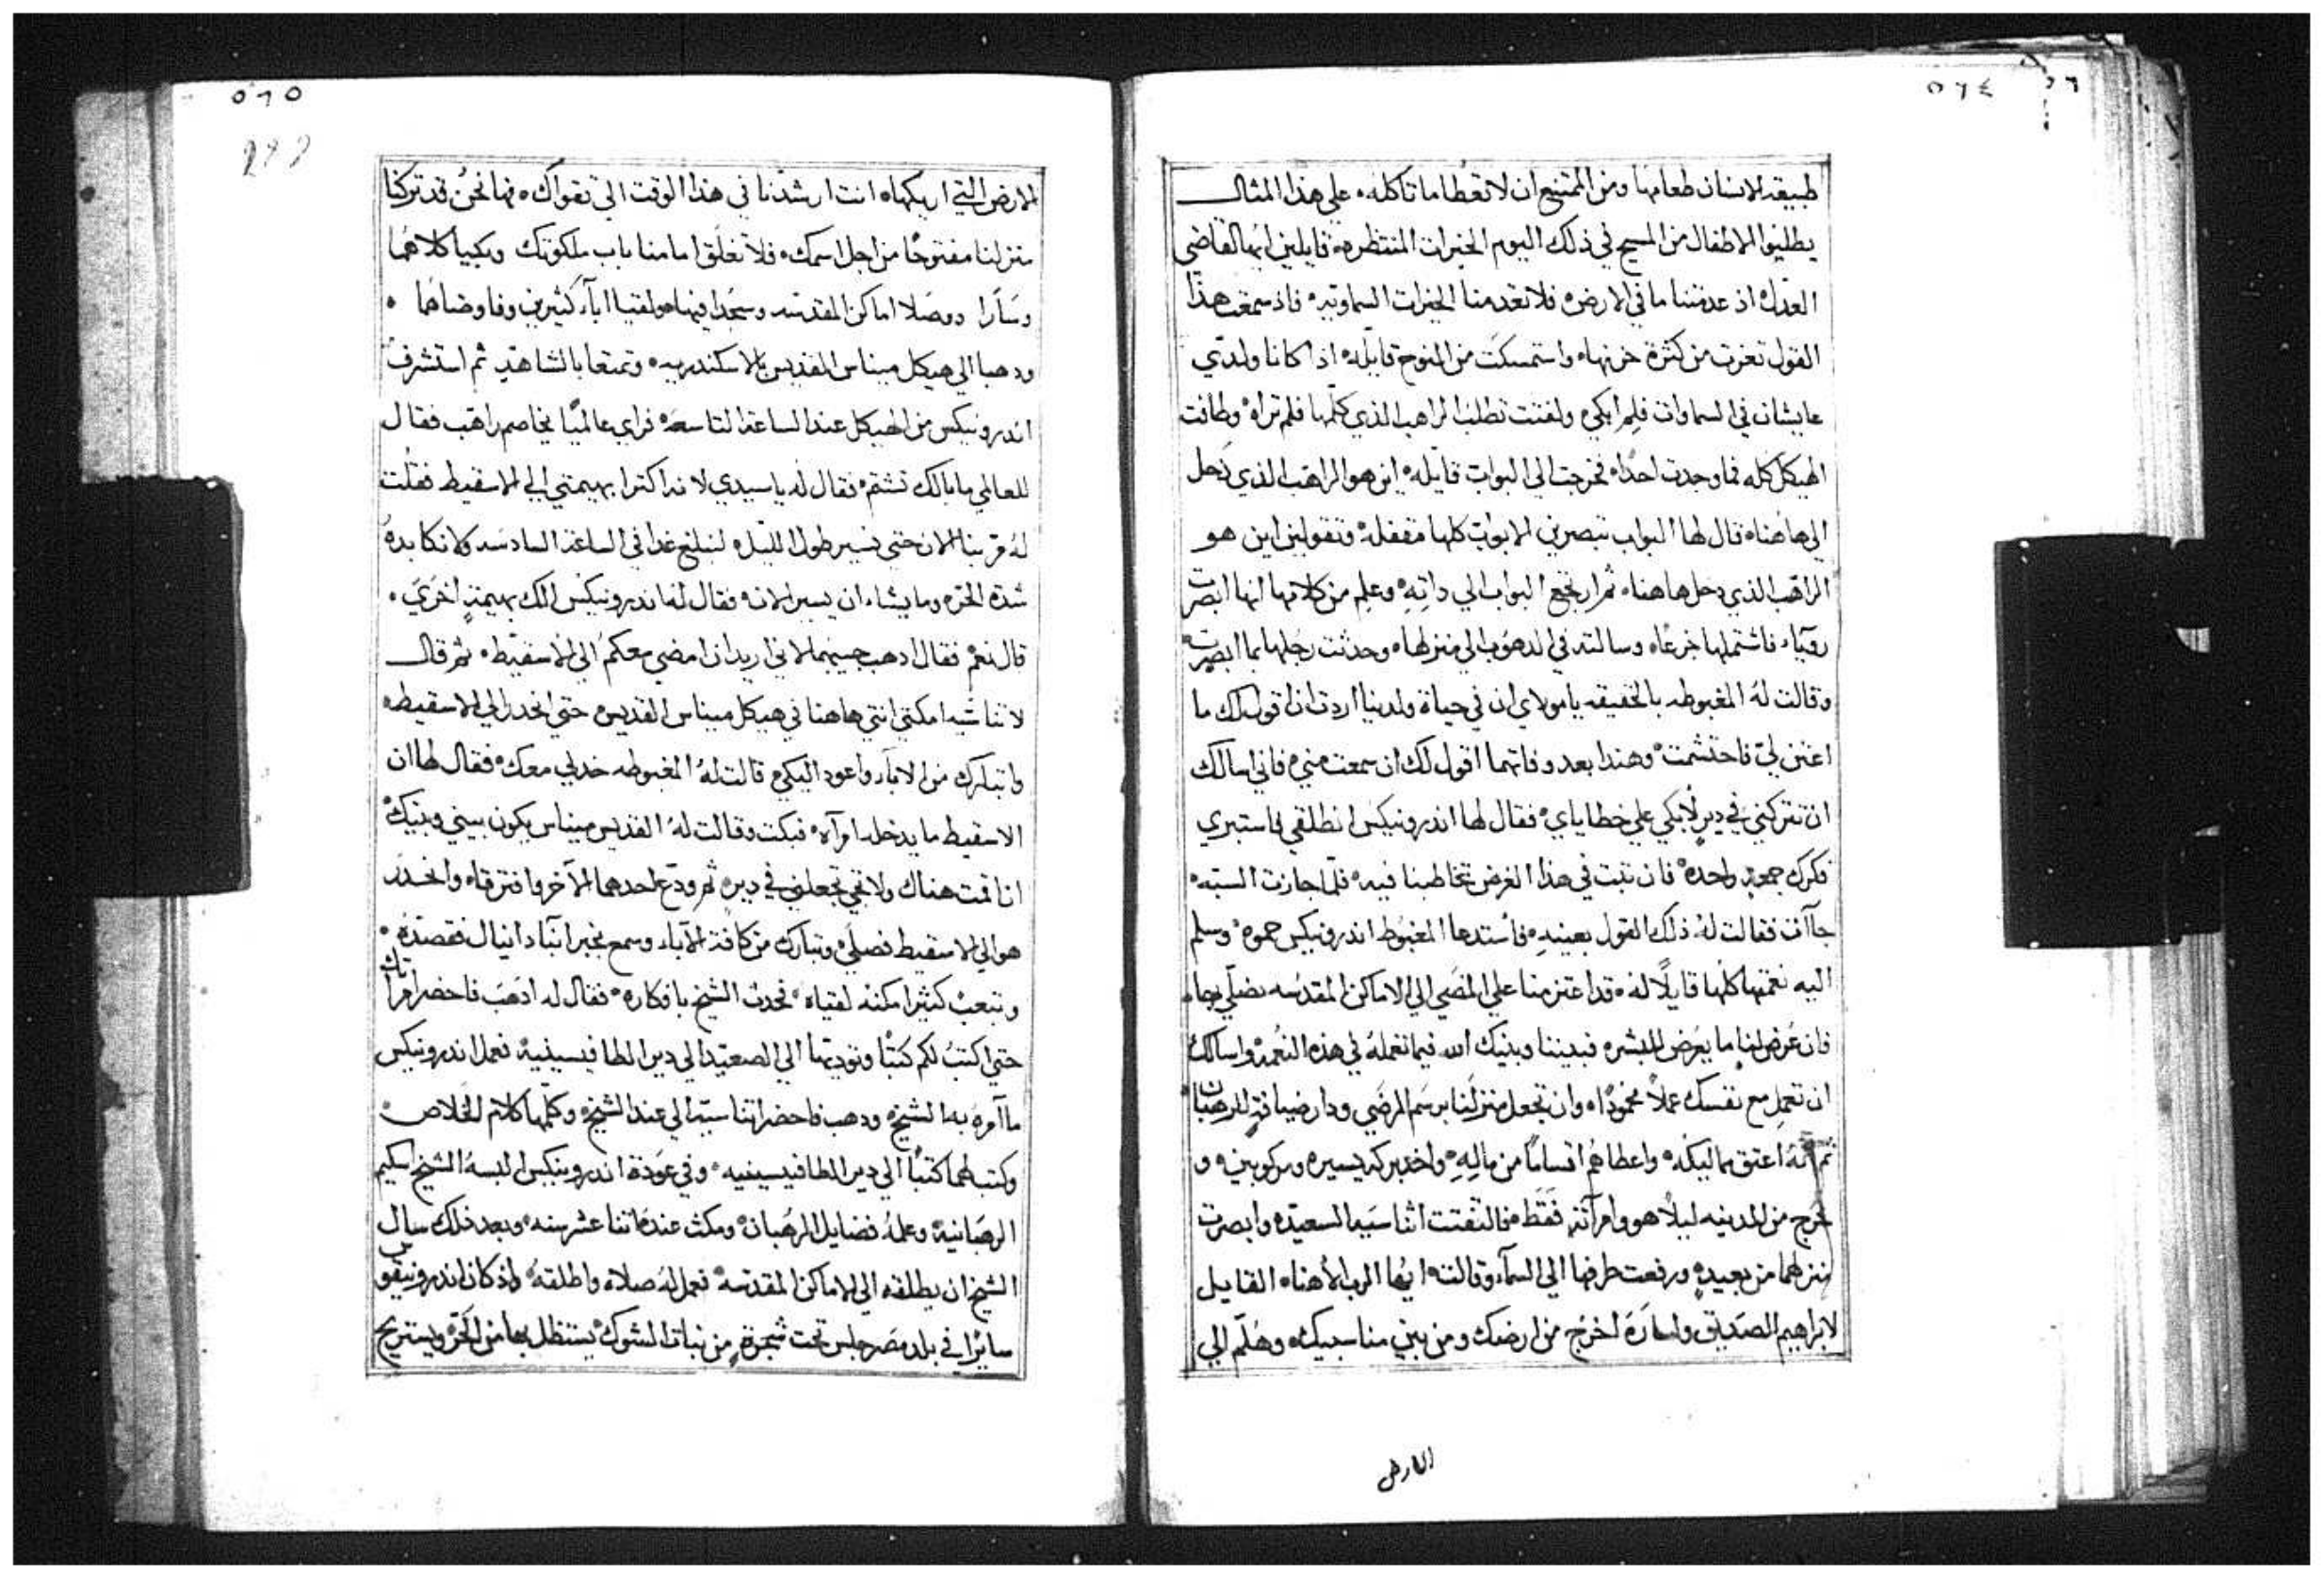 ٥٦٤
طبيعة الانسان طعامها ومن الممتنع ان لا تعطا ما تاكله، على هذا المثال
يطلبوا الاطفال من المسيح في ذلك اليوم الخيرات المنتظره قايلين ايها القاضي
العدل اذ عدمتنا ما في الارض فلا تعدمنا الخيرات السماويه فاذ سمعت هذا
القول تعزت من كثرة حزنها واستمسكت من النوح قايله اذا كانا ولدي
عايشان في السماوات فلم ابكي ولفتت تطلب الراهب الذي كلمها فلم تراه وطافت
الهيكل كله فما وجدت احدا فخرجت الي البواب قايله اين هو الراهب الذي دخل
الي هاهنا قال لها البواب تبصرين الابواب كلها مقفله وتقولين اين هو
الراهب الذي دخل هاهنا ثم ارتجع البواب الي ذاته وعلم من كلامها انها ابصرت
رويا فاشتملها جزعا وسالته في الدهوب الي منزلها وحدثت رجلها بما ابصرت
وقالت له المغبوطه بالحقيقه يا مولاي ان في حياة ولدينا اردت ان اقول لك ما
اعتن لي فاحتشمت وهندا بعد وفاتهما اقول لك ان سمعت مني فاني اسالك
ان تتركني في دير لابكي علي خطاياي فقال لها اندرونيكس انطلقي فاستبري
فكرك جمعه واحده فان تبت في هذا الغرض تخاطبنا فيه فلما جازت السبه
جاآت فقالت له ذلك القول بعينه فاستدعا المغبوط اندرونيكس حموه وسلم
اليه نعمتها كلها قايلا له قد اعتزمنا علي المضي الي الاماكن المقدسه نصلي بها
فان عرض لنا ما يعرض للبشر فبيننا وبينك الله فيما تعمله في هذه النعمه واسالك
ان تعمل مع نفسك عملا محمودا وان تجعل منزلنا برسم المرضي ودار ضيافة للرهبان
ثم انه اعتق مماليكه واعطاهم اقساما من ماله واخد بركه يسيره ومركوبين و
خرج من المدينه ليلا هو وامراته فقط فالتفتت اثناسيه السعيده وابصرت
منزلهما من بعيد ورفعت طرفها الي السمآء وقالت ايها الرب الاهنا القايل
لابراهيم الصديق واساره اخرج من ارضك ومن بين مناسبيك وهلم الي
الارض
٥٦٥
الارض التي اريكها انت ارشدنا في هذا الوقت الي تقواك فها نحن قد تركنا
منزلنا مفتوحا من اجل اسمك فلا تغلق امامنا باب ملكوتك وبكيا كلاهما
وسارا ووصلا اماكن المقدسه وسجدا فيها ولقيا اباء كثيرين وفاوضاهما
ودهبا الي هيكل ميناس القديس بالاسكندريه وتمتعا بالشاهد ثم استشرف
اندرونيكس من الهيكل عند الساعة التاسعه فراي عالميا يخاصم راهب فقال
للعالمي ما بالك تشتم فقال له يا سيدي لانه اكترا بهيمتي الي الاسقيط فقلت
له مر بنا الان حتي نسير طول الليل لنبلغ غدا في الساعة السادسه ولا نكابد
شدة الحر وما يشاء ان يسير الان فقال له اندرونيكس الك بهيمة اخري
قال نعم فقال ادهب جيبهما لاني اريد ان امضي معكم الي الاسقيط ثم قال
لاتناسيه امكتي انتي هاهنا في هيكل ميناس القديس حتي انحدر الي الاسقيط
واتبارك من الاباء واعود اليكي قالت له المغبوطه خدني معك فقال لها ان
الاسقيط ما يدخله امرآه فبكت وقالت له القديس ميناس يكون بيني وبينك
ان اقمت هناك ولا تجي تجعلني في دير ثم ودع احدهما الآخر وافترقا وانحدر
هو الي الاسقيط فصلي وتبارك من كافة الآباء وسمع بخبر انبا دانيال فقصده
وبتعب كثير امكنه لقياه فحدث الشيخ بافكاره فقال له ادهب فاحضر امراتك
حتي اكتب لكم كتبا وتوديها الي الصعيد الي دير الطافيسينيه فعمل اندرونيكس
ما امره به الشيخ ودهب فاحضر اتناسيه الي عند الشيخ وكلمها كلام الخلاص
وكتب لهما كتبا الي دير الطافيسينيه وفي عودة اندرونيكس البسه الشيخ اسكيم
الرهبانيه وعلمه فضايل الرهبان ومكث عنده اتنا عشر سنه وبعد ذلك سال
الشيخ ان يطلقه الي الاماكن المقدسه فعمل له صلاه واطلقه واذ كان اندرونيقوس
سايرا في بلد مصر جلس تحت شجرة من نبات الشوك يستظل بها من الحر ويستريح